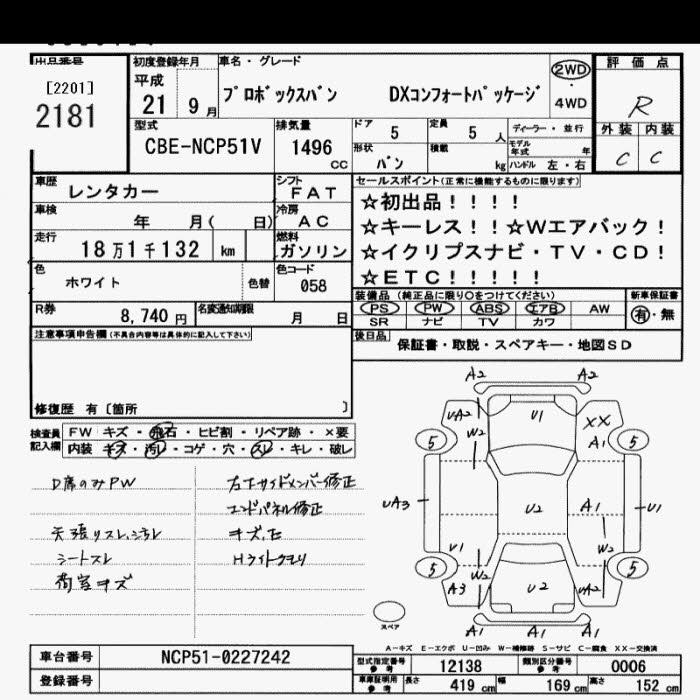 出品番号
[2201]
2181
初度登録年月
平成
21 9月
車名・グレード
プロボックスバン DXコンフォートパッケージ
2WD
・
4WD
評価点
R
外装 内装
C C
型式
CBE-NCP51V
排気量
1496 CC
ドア 5
定員 5人
形状 バン
積載 kg
ディーラー・並行
モデル年式 年
ハンドル 左・右
車歴 レンタカー
シフト FAT
車検 年 月( 日)
冷房 AC
走行 18万1千132 km
燃料 ガソリン
色 ホワイト 色替
色コード 058
R券 8,740円
名変通知期限 月 日
セールスポイント(正常に機能するものに限ります)
☆初出品!!!!
☆キーレス!!☆Wエアバック!
☆イクリプスナビ・TV・CD!
☆ETC!!!!!
装備品(純正品に限り○をつけてください)
PS PW ABS エアB AW
SR ナビ TV カワ
新車保証書
有・無
後日品 保証書・取説・スペアキー・地図SD
注意事項申告欄(不具合内容等は具体的に記入して下さい)
修復歴 有〔箇所 〕
検査員記入欄
FW キズ・飛石・ヒビ割・リペア跡・×要
内装 キズ・汚レ・コゲ・穴・スレ・キレ・破レ
D席のみPW
天張リスレ、
シートスレ
荷室キズ
右サイドメンバー修正
エンドパネル修正
キズ、
Hライトクモリ
A2 A2
UA2 U1 XX
W2 A1
5 5
UA3 U2 A1 U1
U1 W2
5 W2 5
A3 U2 UA2
A1 A1 A1
スペア
A-キズ E-エクボ U-凹み W-補修跡 S-サビ C-腐食 XX-交換済
車台番号 NCP51-0227242
登録番号
型式指定番号 参考 12138
類別区分番号 参考 0006
車庫証明用 参考 長さ 419 cm 幅 169 cm 高さ 152 cm